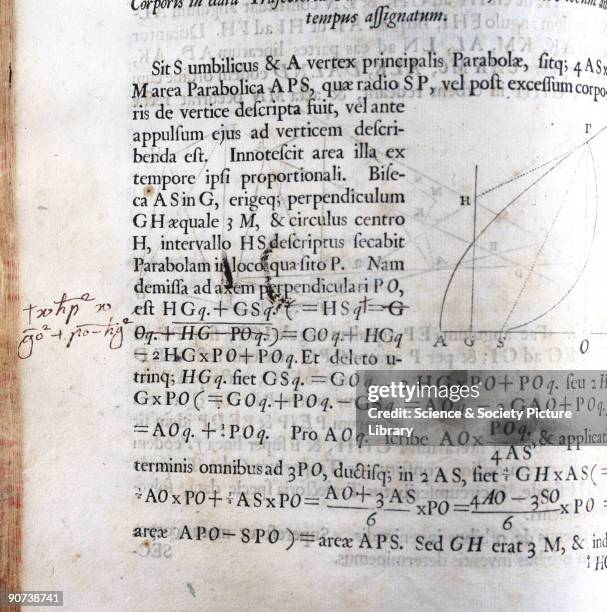 Corporis in data
tempus assignatum.
Sit S umbilicus & A vertex principalis Parabolæ, sitq; 4 AS x
M area Parabolica APS, quæ radio SP, vel post excessum corpo-
ris de vertice descripta fuit, vel ante
appulsum ejus ad verticem descri-
benda est. Innotescit area illa ex
tempore ipsi proportionali. Bise-
ca AS in G, erigeq; perpendiculum
GH æquale 3 M, & circulus centro
H, intervallo HS descriptus secabit
Parabolam in loco quæsito P. Nam
demissa ad axem perpendiculari PO,
est HGq. + GSq. (= HSq = G
Oq. + HG − POq.) = GOq + HGq
− 2HG x PO + POq. Et deleto u-
trinq; HGq. fiet GSq. = GOq. PO + POq. seu 2 H
G x PO (= GOq. + POq. − GS 2 GAO + POq.
= AOq. + ¾ POq. Pro AOq. scribe AO x POq./4AS, & applicat
terminis omnibus ad 3PO, ductisq; in 2 AS, fiet ⁴⁄₃ GH x AS (=
¹⁄₆ AO x PO + ½ AS x PO = AO + 3 AS/6 x PO = 4AO − 3SO/6 x PO =
areæ APO − SPO) = areæ APS. Sed GH erat 3 M, & ind
SEC-
⁴⁄₃ HG
P
H
A G S O
gettyimages
Credit:
Science & Society Picture
Library
90738741